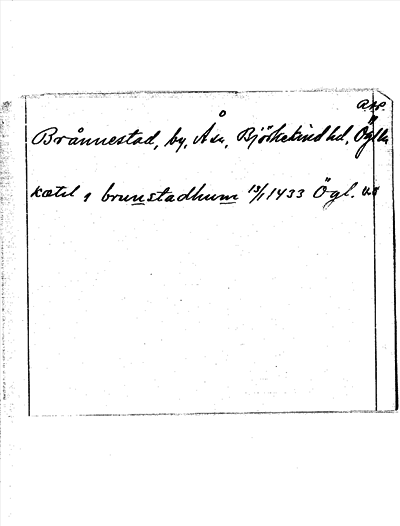 Brånnestad, by, Å sn, Bjärkekind hd, Ögl.
kætil i brunstadhum 13/1 1433 Ögl.